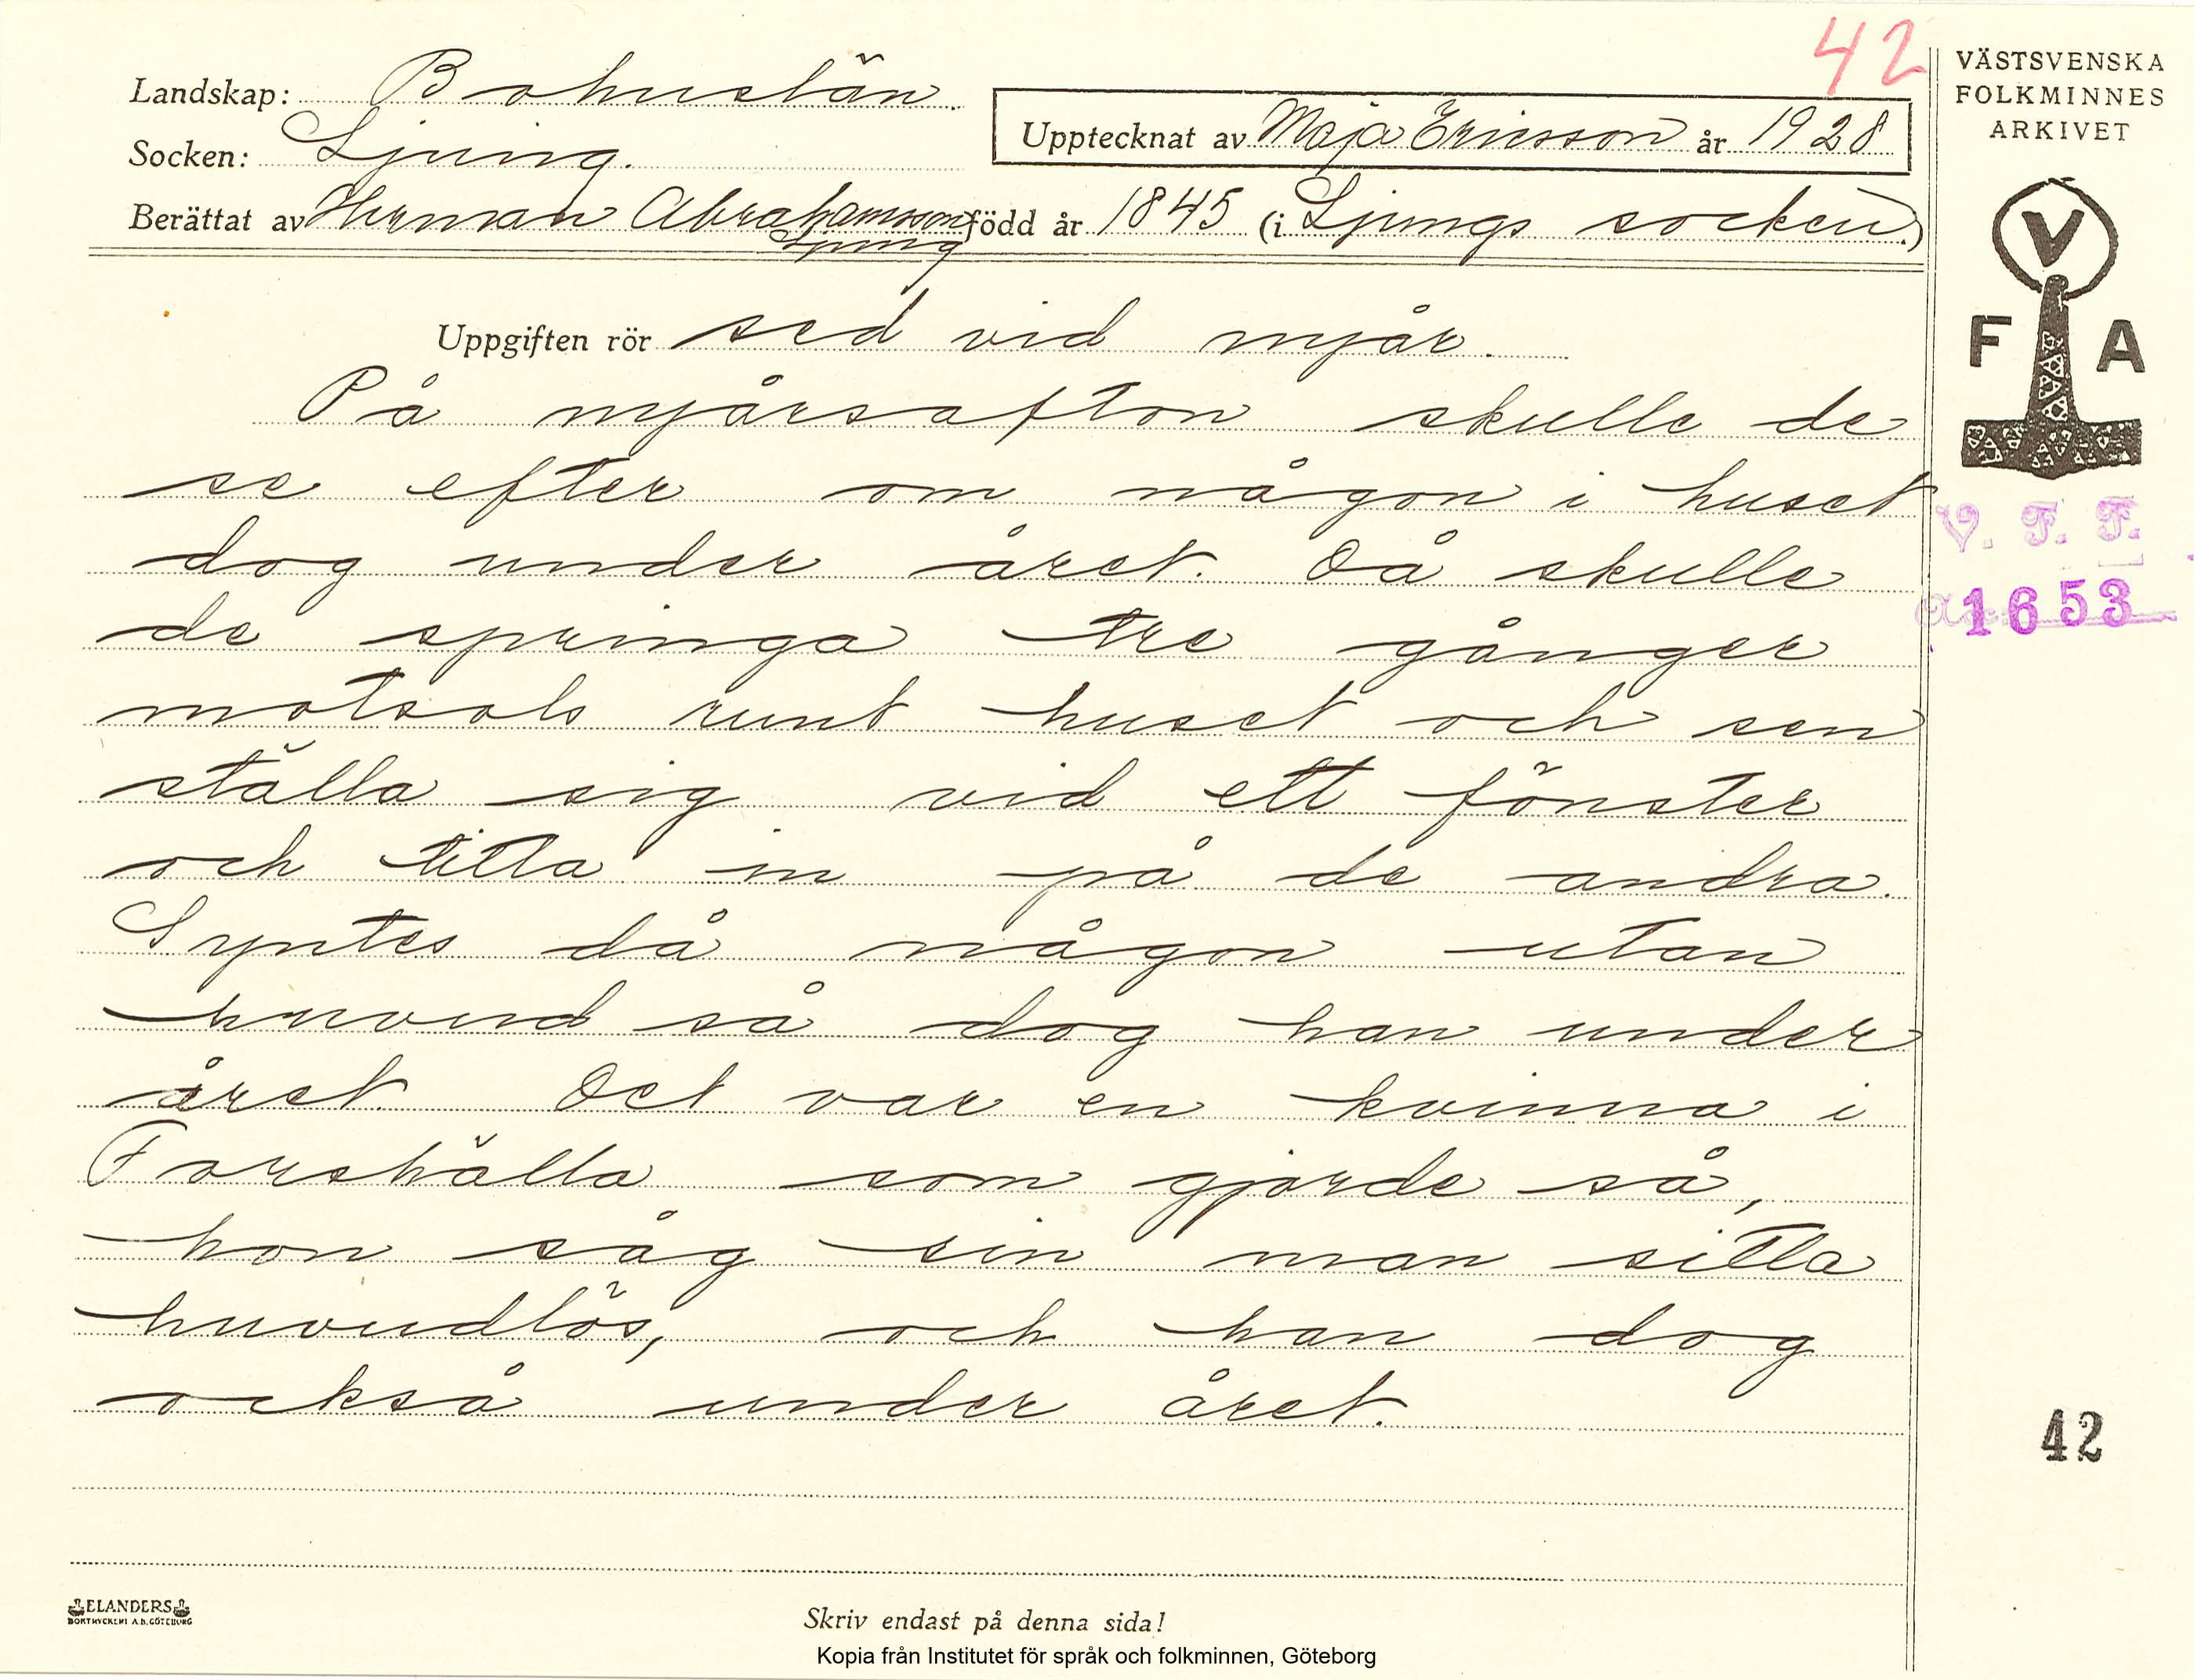 42
Landskap: Bohuslän
Socken: Ljung.
Upptecknat av Maja Ericsson år 1928
Berättat av Herman Abrahamsson född år 1845 (i Ljungs socken.)
Ljung
VÄSTSVENSKA
FOLKMINNES
ARKIVET
V
F A
V. F. F.
1653
Uppgiften rör sed vid nyår.
På nyårsafton skulle de
se efter om någon i huset
dog under året. Då skulle
de springa tre gånger
motsols runt huset och sen
ställa sig vid ett fönster
och titta in på de andra.
Syntes då någon utan
huvud så dog han under
året. Det var en kvinna i
Forshälla som gjorde så,
hon såg sin man sitta
huvudlös, och han dog
också under året.
42
ELANDERS
BOKTRYCKERI A.B. GÖTEBORG
Skriv endast på denna sida!
Kopia från Institutet för språk och folkminnen, Göteborg